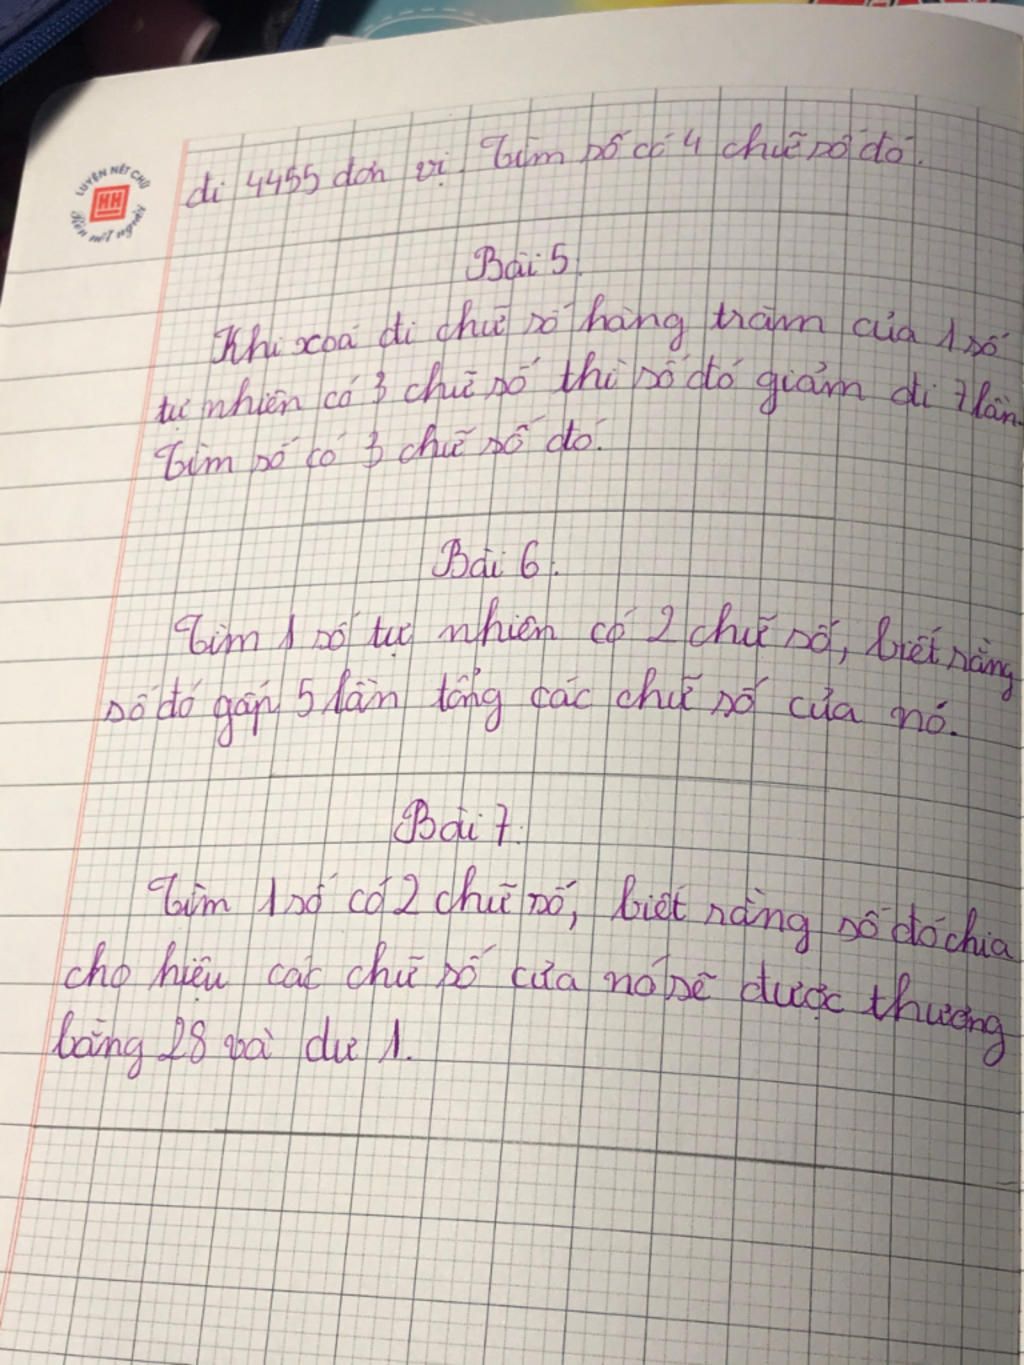 LUYỆN NÉT CHỮ
HH
Rèn nết người
đi 4455 đơn vị. Tìm số có 4 chữ số đó.
Bài 5.
Khi xoá đi chữ số hàng trăm của 1 số
tự nhiên có 3 chữ số thì số đó giảm đi 7 lần.
Tìm số có 3 chữ số đó.
Bài 6.
Tìm 1 số tự nhiên có 2 chữ số, biết rằng
số đó gấp 5 lần tổng các chữ số của nó.
Bài 7.
Tìm 1 số có 2 chữ số, biết rằng số đó chia
cho hiệu các chữ số của nó sẽ được thương
bằng 28 và dư 1.